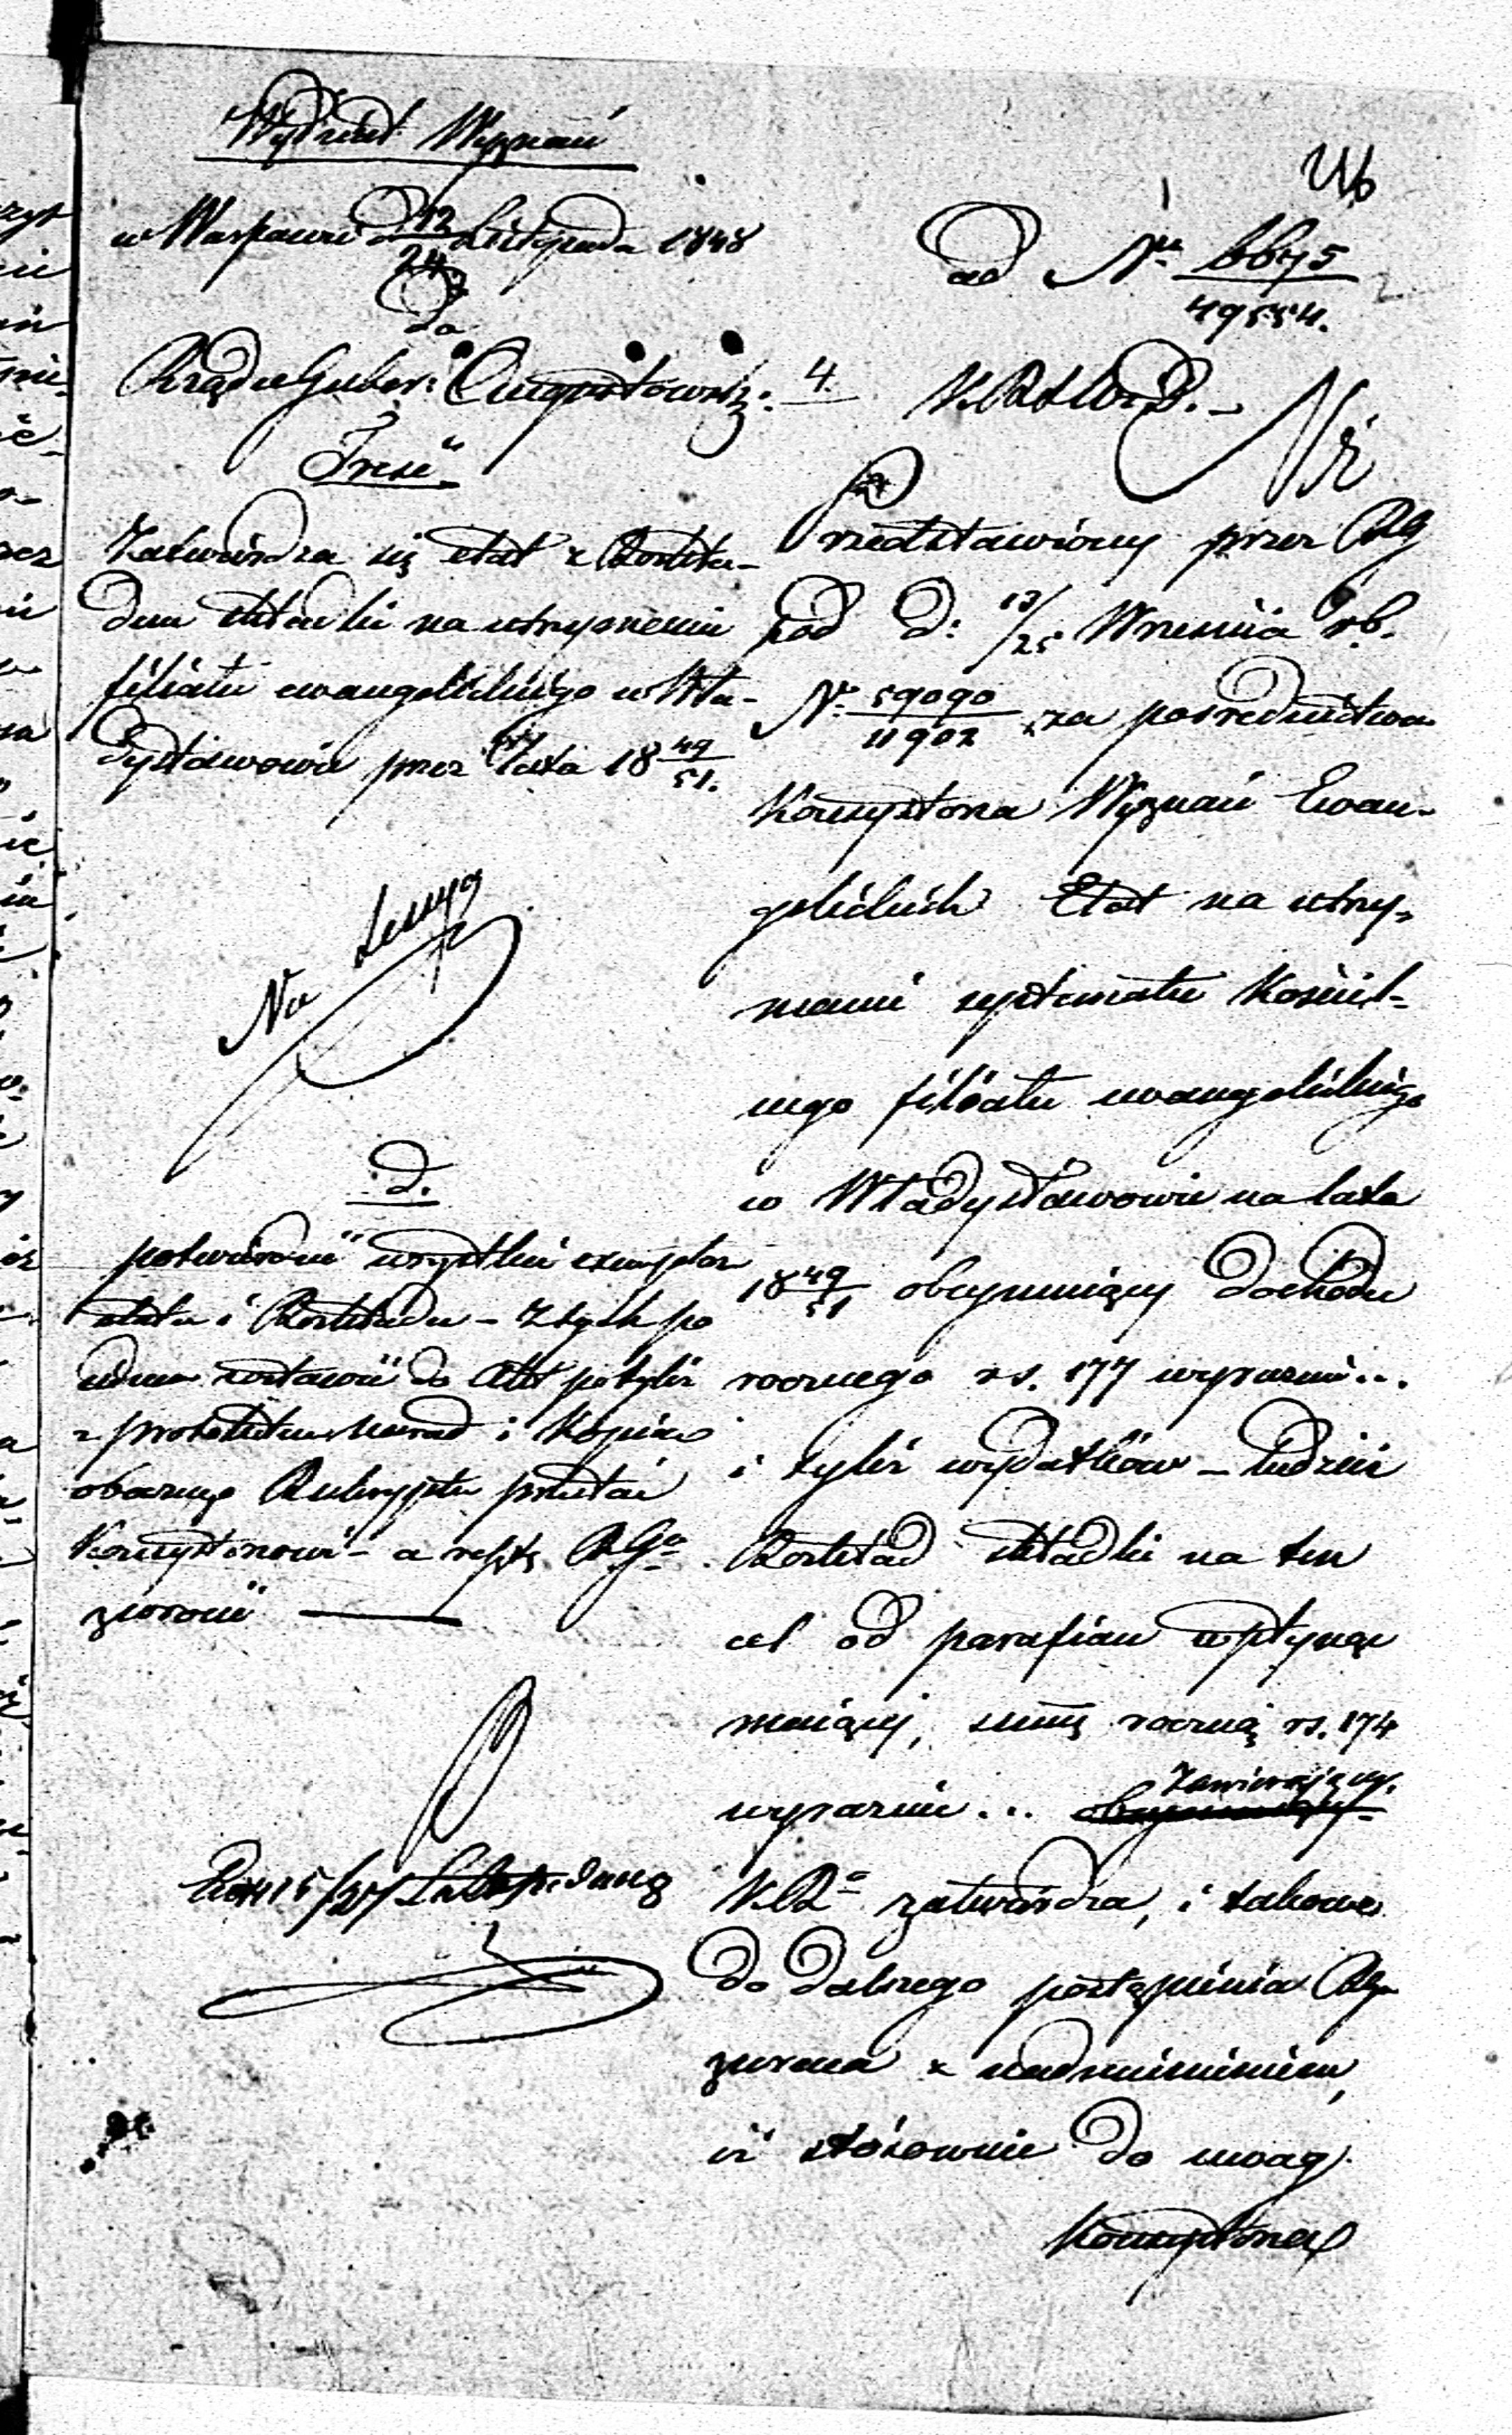 Wydział Wyznań
w Warszawie d 12/24 Listopada 1848
Do
Rządu Guber: Augustowsk: 4
Treść
Zatwierdza się etat z Rozkła-
dem składki na utrzymanie
filiału ewangelickiego w Wła-
dysławowie przez lata 18 49/51.
Na
d.
potwierdzić wszystkie exemplarz
etatu i Rozkładu – z tych po
jednem zostawić do Akt po tyleż
z protokołem narad i Kopią
obecnego Reskryptu przesłać
Konsystorzowi – a resztę RGo
zwrócić
15/27 Listopada
ad Nr 6675/49554.
Przedstawiony przez RG
pod d: 13/25 Września rb.
Nr 59090/11902 za pośrednictwem
Konsystorza Wyznań Ewan-
gelickich Etat na utrzy-
manie systematu Kościel-
nego filiału ewangelickiego
w Władysławowie na lata
18 49/51 obejmujący dochodu
rocznego rs. 177 wyraźnie...
i tyleż wydatków – tudzież
Rozkład składki na ten
cel od parafian wpłynąć
mającej, summę roczną rs. 174
wyraźnie... zawierający.
KRo zatwierdza, i takowe
do dalszego postąpienia RGo
zwraca z nadmienieniem,
iż stósownie do uwag
Konsystorza